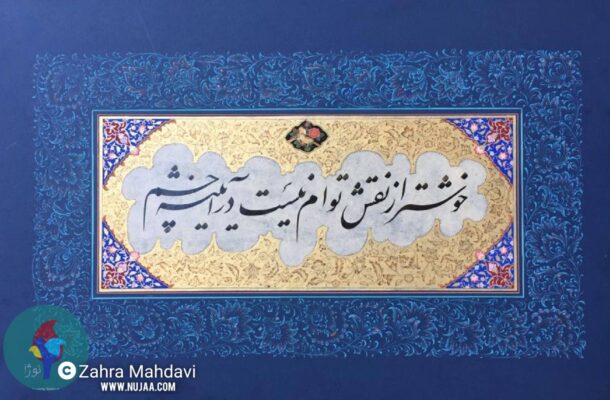 خوشتر از نقش توام نیست در آیینه چشم
نوژا
© Zahra Mahdavi
WWW.NUJAA.COM